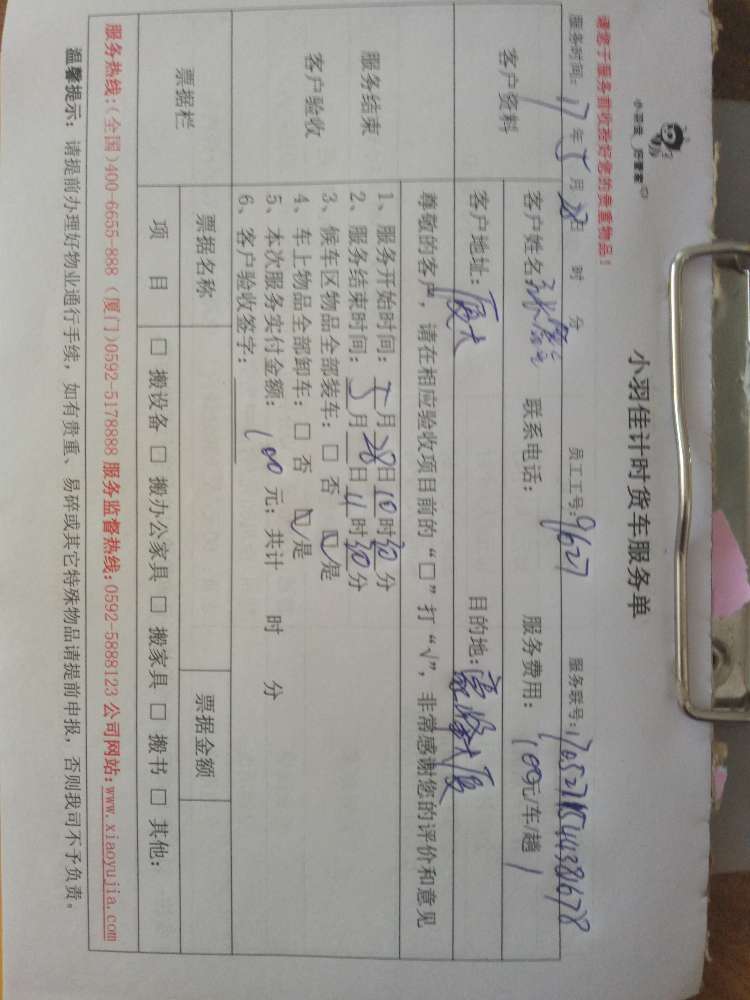 小羽佳 好管家
小羽佳计时货车服务单
请您于服务前收拾好您的贵重物品!
服务时间: 17年5月28日 时 分 员工工号: 9627 服务联号:
客户资料
客户姓名 联系电话: 服务费用: 100元/车/趟
客户地址: 厦大 目的地: 大厦
尊敬的客户,请在相应验收项目前的“□”打“√”,非常感谢您的评价和意见
服务结束
客户验收
1、服务开始时间: 5月28日10时30分
2、服务结束时间: 5月 日11时30分
3、候车区物品全部装车: □ 否 ☑ 是
4、车上物品全部卸车: □ 否 ☑ 是
5、本次服务实付金额: 100元; 共计 时 分
6、客户验收签字:
票据栏
票据名称 票据金额
项 目 □ 搬设备 □ 搬办公家具 □ 搬家具 □ 搬书 □ 其他:
服务热线:(全国)400-6655-888 (厦门)0592-5178888 服务监督热线:0592-5888123 公司网站:www.xiaoyujia.com
温馨提示: 请提前办理好物业通行手续,如有贵重、易碎或其它特殊物品请提前申报,否则我司不予负责。